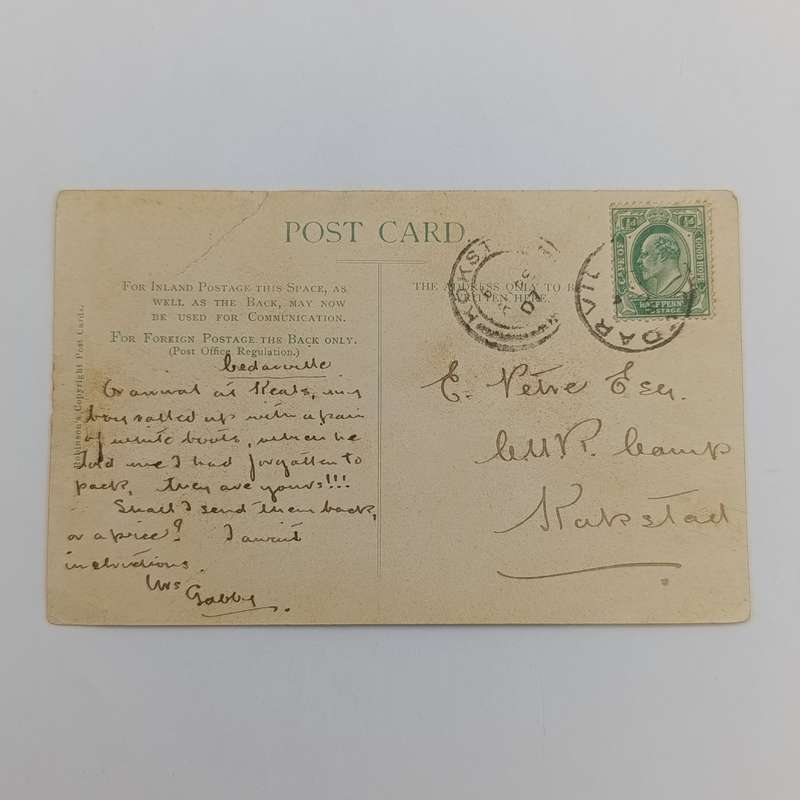 POST CARD.
FOR INLAND POSTAGE THIS SPACE, AS
WELL AS THE BACK, MAY NOW
BE USED FOR COMMUNICATION.
FOR FOREIGN POSTAGE THE BACK ONLY.
(POST OFFICE REGULATION.)
Robinson's Copyright Post Cards.
Cedarville
On arrival at Keats, my
boy rolled up with a pair
of white boots, when he
told me I had forgotten to
pack, they are yours!!!
Shall I send them back,
or a price? I await
instructions.
Gabby.
THE ADDRESS ONLY TO BE
WRITTEN HERE.
E. Petre Esq.
CMR. Camp
Kokstad
½d ½d
CAPE OF GOOD HOPE
HALF PENNY
POSTAGE
KOKST
07
DARVIL